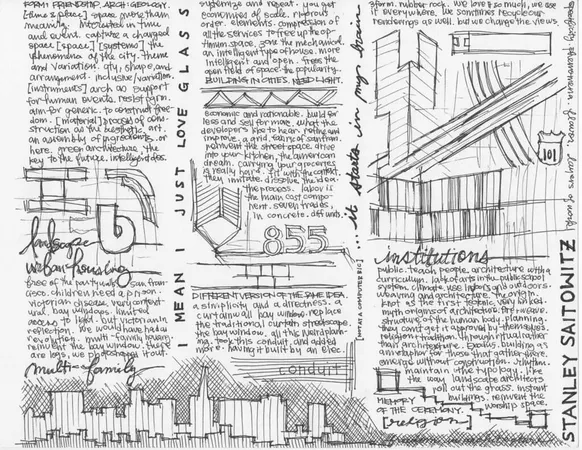 FORM. FRIENDSHIP. ARCH. GEOLOGY.
[time & space] space more than
meaning. interested in time
and event. capture a charged
space [space] [systems] the
phenomena of the city. theme
and variation. qty, shape, and
arrangement. inclusive/variation.
[instruments] arch as support
for human events. resist form.
aim for generic. to construct free-
dom. [material] process of con-
struction as the aesthetic. art.
an assembly of ingredients.
here. green architecture. the
key to the future. intelligent idea.
landscape
urban housing
free of the party wall. san fran-
cisco. children need a prison.
victorian disease. very context
ual. bay windows. limited
access to light. but victorian is
revolution. we would have had a
revolution. multi-family seven.
reinvent the bay window. there
are legs, we photographed it out.
multi-family
I MEAN I JUST LOVE GLASS
systemize and repeat. you get
economies of scale. rigorous
order. elements. compression of
all the services to free up the op-
timum space. zone the mechanical.
an intelligent type of house. more
intelligent and open. frees the
open field of space. the popularity.
BUILDING IN CITIES. NEED LIGHT.
economic and rationable. build for
less and sell for more. what the
developers like to hear. refine and
improve. a grid.
reinvent the street-space. drive
into your kitchen, the american
dream. carrying your groceries
is really hard. fit with the context.
they imitate. dissolve the idea.
the process. labor is
the main cost compo-
nent. seven trades,
in concrete. diff units.
855
DIFFERENT VERSION OF THE SAME IDEA.
a simplicity and a directness. a
curtain all bay window. replace
the traditional curtain streetscape.
the bay window. all the hard bank-
ing. took this conduit. and added
more. having it built by an elec.
conduit
...it starts in my brain
[NOT IN A COMPUTER BIO]
form. rubber. rock. we love it so much, we use
it everywhere. we sometimes recycle our
renderings as well. but we change the views.
101
institutions
public. teach people. architecture with a
curriculum. lack of arts in the public school
system. climate. use indoors and outdoors.
weaving and architecture. the origin.
knot is the first tectonic. very linked.
myth origins of architecture. pre weave.
structure of the human body. planning.
they can't get it approved by themselves.
religion + tradition. through ritual rather
than architecture. exodus. building as
a metaphor for those that gather there.
emerge without construction. rhythm.
maintain the typology. like
the way landscape architects
roll out the grass. instant
buildings. reinvent the
worship space.
MEMORY
OF THE CEREMONY.
[religion]
layers of
STANLEY SAITOWITZ